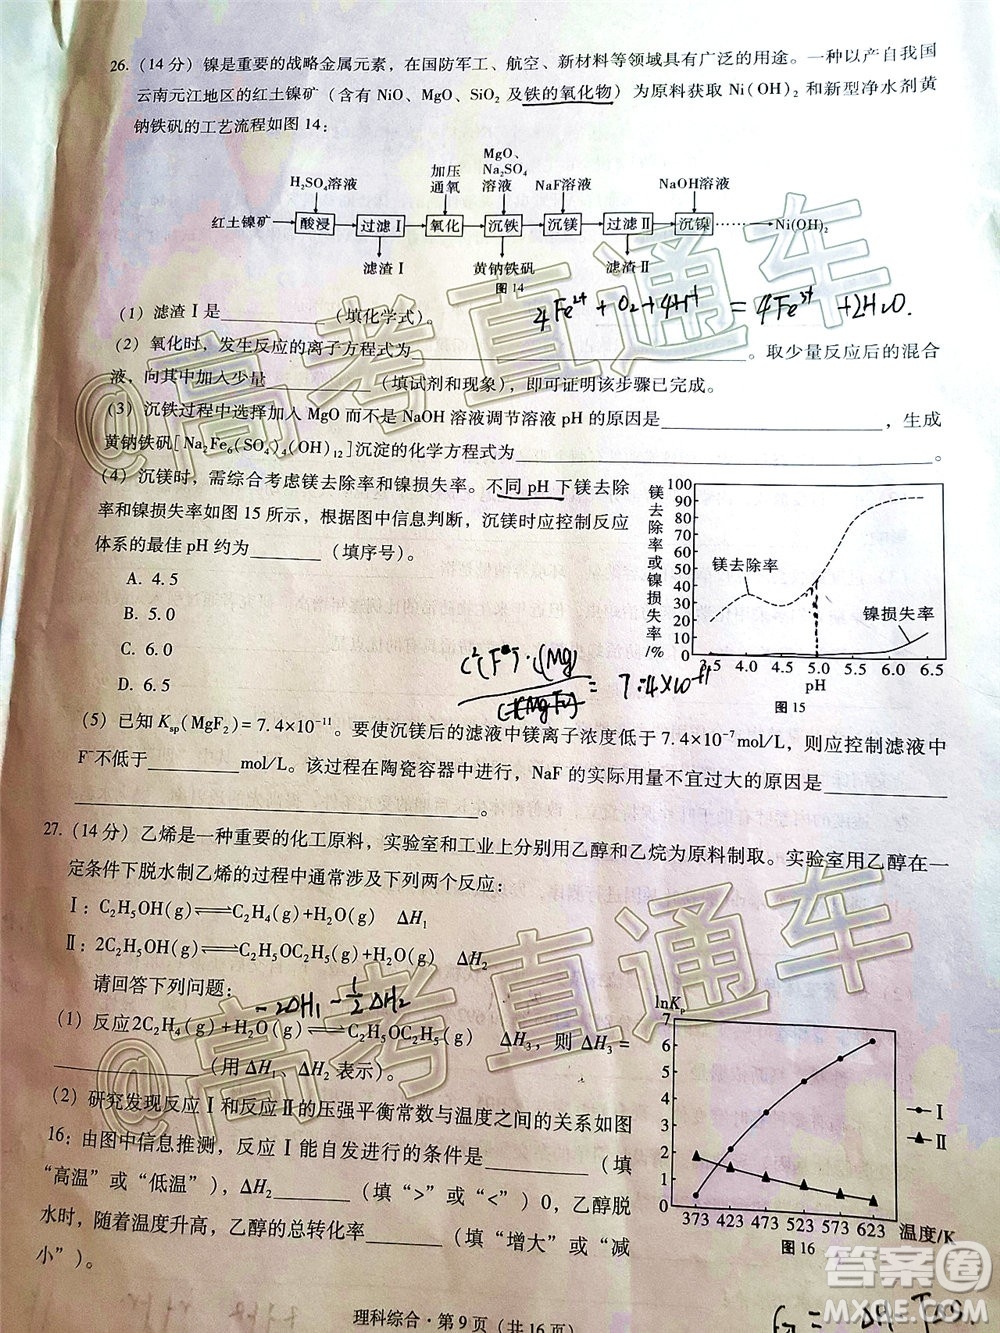 26. (14 分) 镍是重要的战略金属元素，在国防军工、航空、新材料等领域具有广泛的用途。一种以产自我国
云南元江地区的红土镍矿（含有 NiO、MgO、SiO₂ 及铁的氧化物）为原料获取 Ni(OH)₂ 和新型净水剂黄
钠铁矾的工艺流程如图 14：
MgO、
加压 Na₂SO₄
H₂SO₄溶液 通氧 溶液 NaF溶液 NaOH溶液
红土镍矿 酸浸 过滤Ⅰ 氧化 沉铁 沉镁 过滤Ⅱ 沉镍 …… Ni(OH)₂
滤渣Ⅰ 黄钠铁矾 滤渣Ⅱ
图 14
4Fe²⁺ + O₂ + 4H⁺ = 4Fe³⁺ + 2H₂O.
(1) 滤渣Ⅰ是________（填化学式）。
(2) 氧化时，发生反应的离子方程式为________。取少量反应后的混合
液，向其中加入少量________（填试剂和现象），即可证明该步骤已完成。
(3) 沉铁过程中选择加入 MgO 而不是 NaOH 溶液调节溶液 pH 的原因是________，生成
黄钠铁矾[Na₂Fe₆(SO₄)₄(OH)₁₂]沉淀的化学方程式为________。
(4) 沉镁时，需综合考虑镁去除率和镍损失率。不同 pH 下镁去除
率和镍损失率如图 15 所示，根据图中信息判断，沉镁时应控制反应
体系的最佳 pH 约为________（填序号）。
A. 4.5
B. 5.0
C. 6.0
D. 6.5
镁去除率或镍损失率/%
100
90
80
70
60
50
40
30
20
10
0
镁去除率
镍损失率
3.5 4.0 4.5 5.0 5.5 6.0 6.5
pH
图 15
= 7.4×10⁻¹¹
(5) 已知 Ksp(MgF₂)= 7.4×10⁻¹¹。要使沉镁后的滤液中镁离子浓度低于 7.4×10⁻⁷mol/L，则应控制滤液中
F⁻不低于________mol/L。该过程在陶瓷容器中进行，NaF 的实际用量不宜过大的原因是________
________。
27. (14 分) 乙烯是一种重要的化工原料，实验室和工业上分别用乙醇和乙烷为原料制取。实验室用乙醇在一
定条件下脱水制乙烯的过程中通常涉及下列两个反应：
Ⅰ：C₂H₅OH(g)⇌C₂H₄(g)+H₂O(g) ΔH₁
Ⅱ：2C₂H₅OH(g)⇌C₂H₅OC₂H₅(g)+H₂O(g) ΔH₂
请回答下列问题：
(1) 反应2C₂H₄(g)+H₂O(g)⇌C₂H₅OC₂H₅(g) ΔH₃，则 ΔH₃ =
________（用 ΔH₁、ΔH₂ 表示）。
(2) 研究发现反应Ⅰ和反应Ⅱ的压强平衡常数与温度之间的关系如图
16：由图中信息推测，反应Ⅰ能自发进行的条件是________（填
“高温”或“低温”），ΔH₂________（填“>”或“<”）0，乙醇脱
水时，随着温度升高，乙醇的总转化率________（填“增大”或“减
小”）。
lnKp
7
6
5
4
3
2
1
0
Ⅰ
Ⅱ
373 423 473 523 573 623 温度/K
图 16
理科综合·第 9 页（共 16 页）
@高考直通车
@高考直通车
答案圈
MXQE.COM